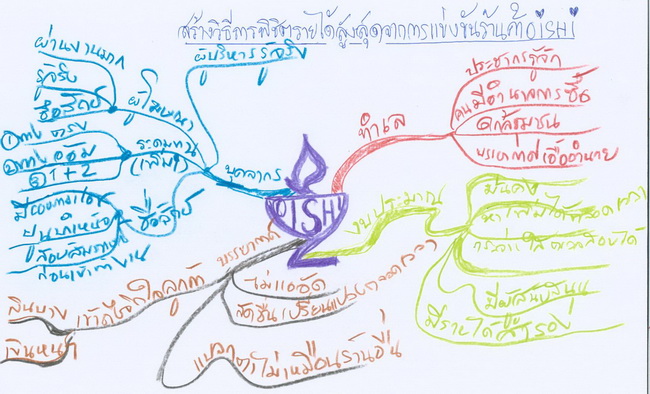 สร้างวิธีการพิชิตรายได้สูงสุดจากการแข่งขันร้านค้า OISHI
OISHI
ทำเล
ประชากรรู้จัก
คนมีอำนาจการซื้อ
ใกล้ชุมชน
งบประมาณ
มั่นคง
มีรายได้สำรอง
บรรยากาศ
ไม่แออัด
สดชื่น เปลี่ยนแปลงตลอดเวลา
แปลกตาไม่เหมือนร้านอื่น
เข้าถึงจิตใจลูกค้า
เงินบาง
เงินหนา
บุคลากร
ผู้บริหารรู้จริง
ผู้โฆษณา
ผ่านงานมาก
รู้จริง
ซื่อสัตย์
ระดมทุน
ทางตรง
ทางอ้อม
1+2
ซื่อสัตย์
ก่อนเข้าทำงาน